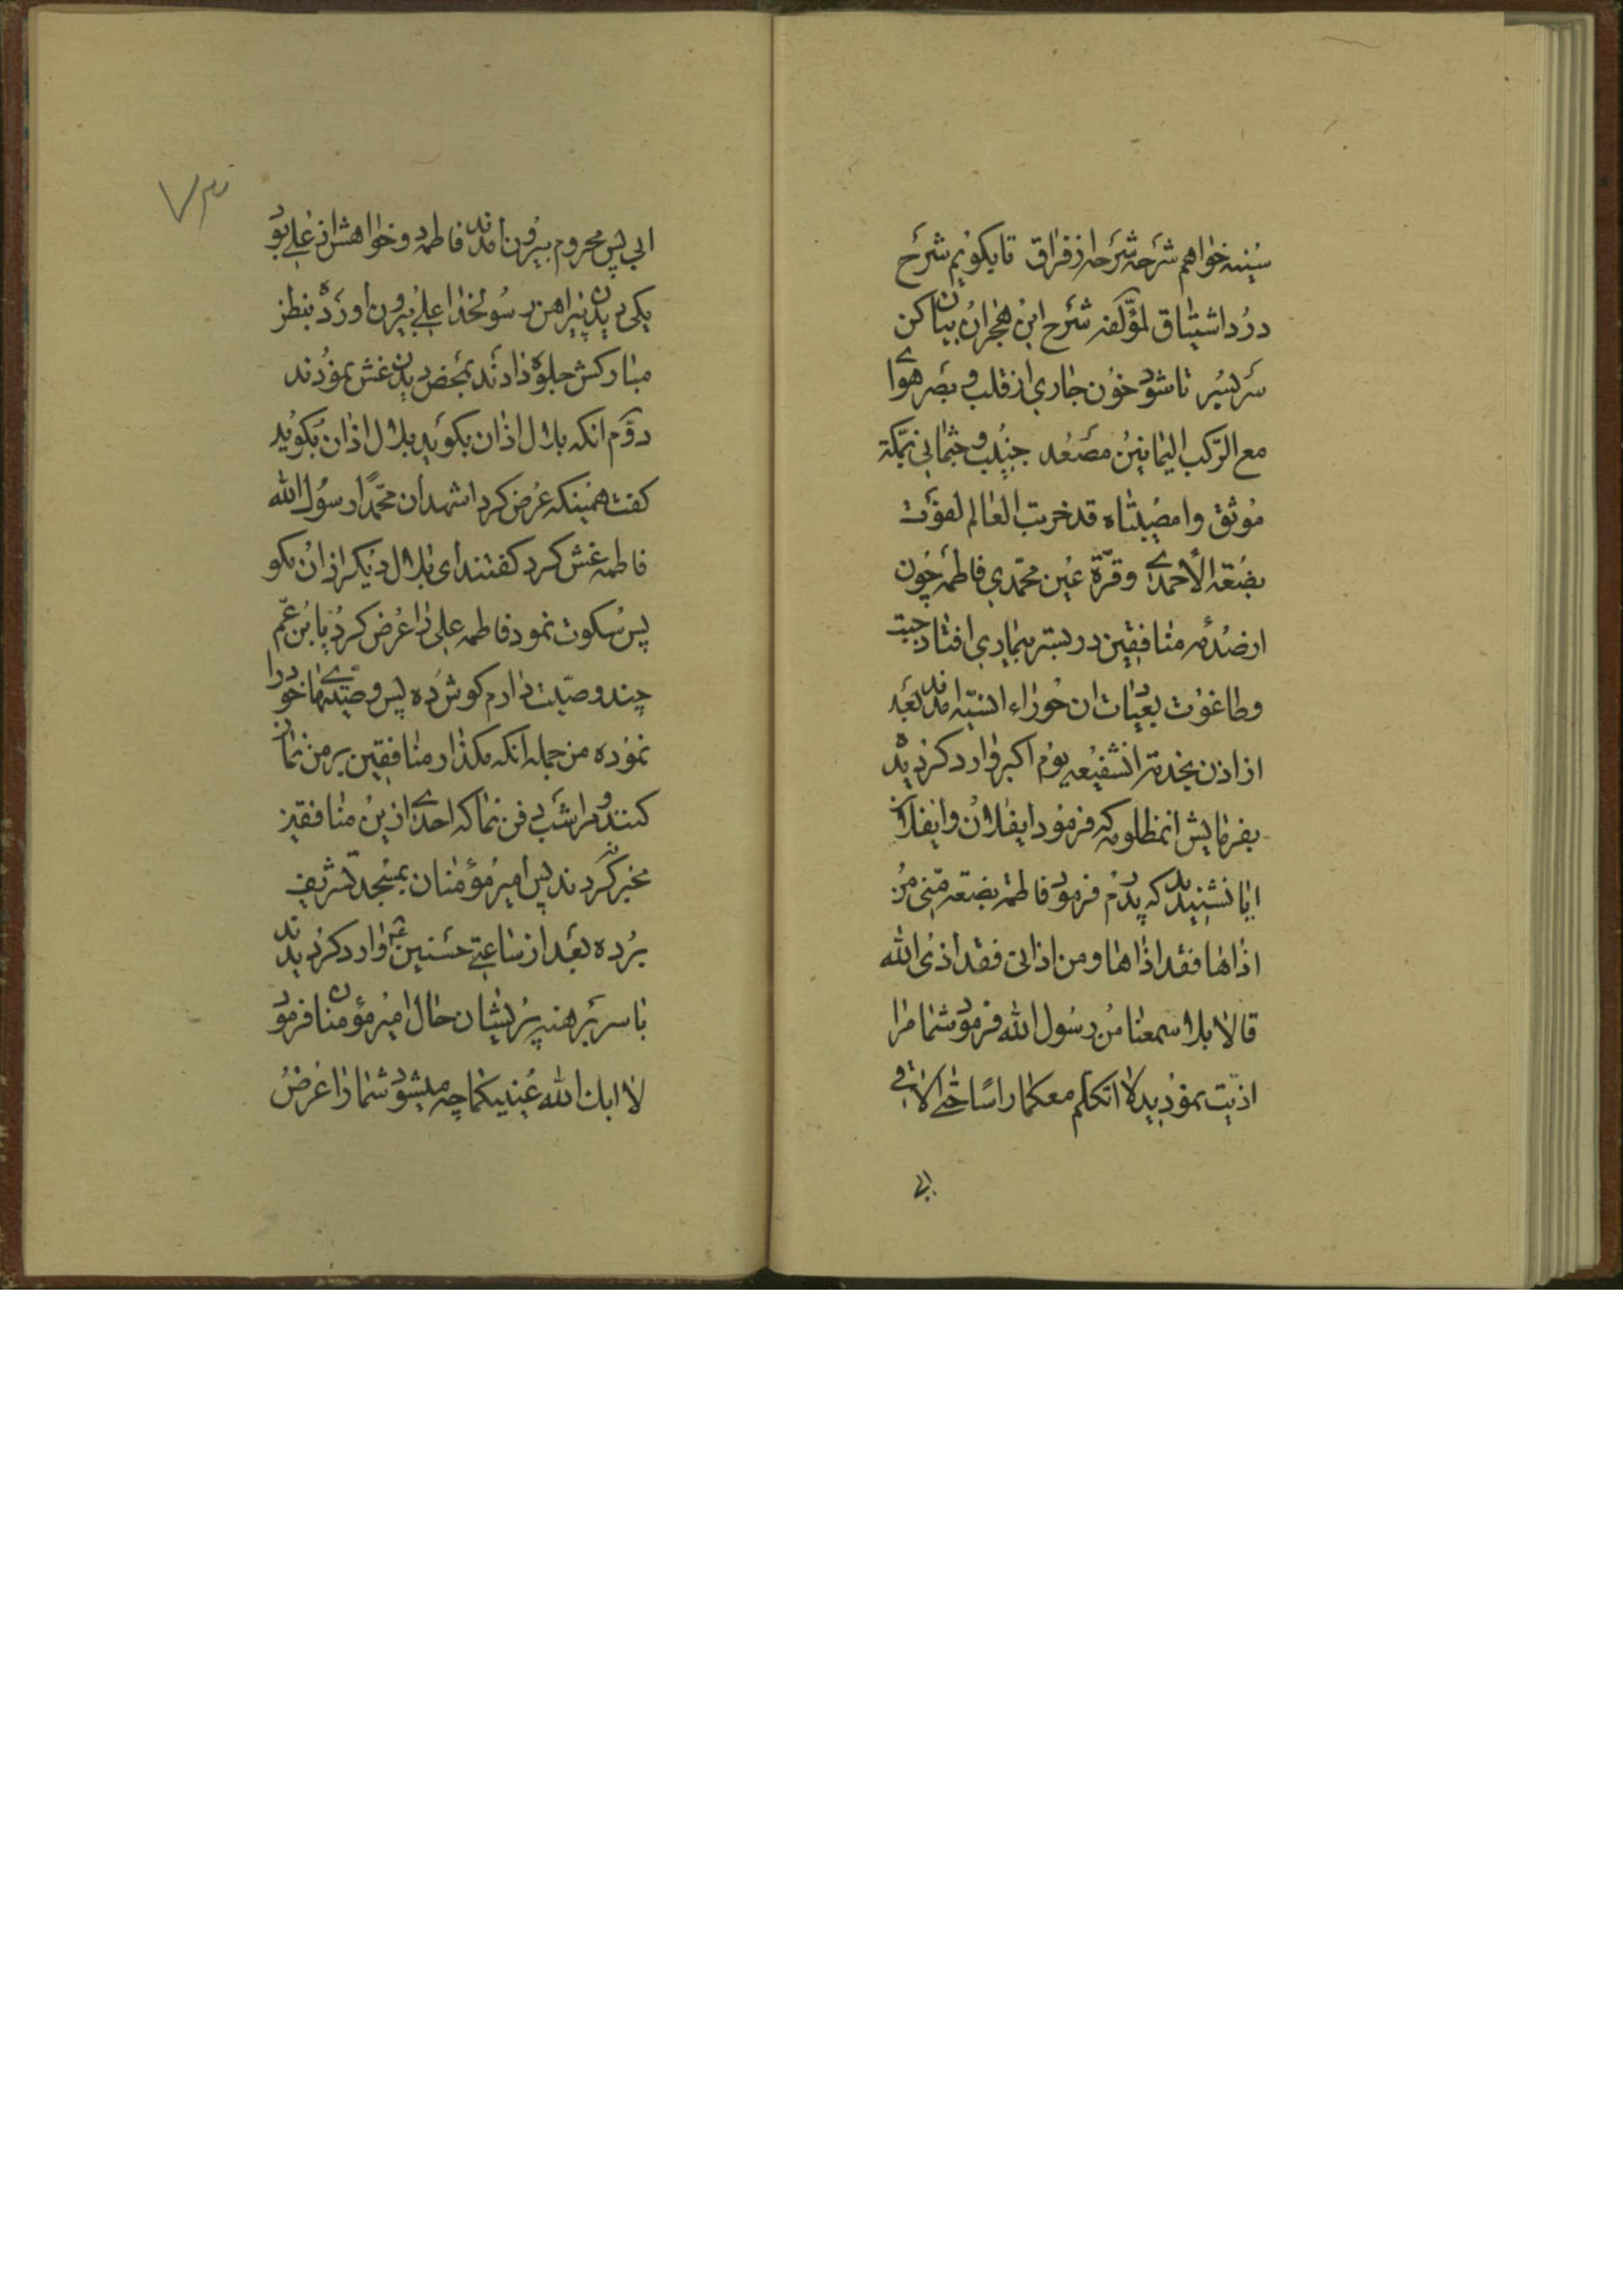 سینه خواهم شرحه شرحه از فراق تا بکویم شرح
درد اشتیاق لمؤلفه شرح این هجران بیان کن
سر بسر تا شود خون جاری از قلب و بصر هوای
مع الرکب الیمانین مصعد جنیب و جثمانی بمکة
موثق وا مصیبتاه قد خربت العالم لفوت
بضعة الأحمدی و قرّة عین محمّدی فاطمه چون
از صدمه منافقین در بستر بیماری افتاد جبت
و طاغوت بعیادت ان حوراء انسیّه امدند بعد
از اذن بخدمت انشفیعه یوم اکبر وارد کردیده
بفرمایش انمظلومه که فرمود ایفلان و ایفلان
ایا نشنیدید که پدرم فرمود فاطمة بضعة منّی من
اذاها فقد اذاها و من اذانی فقد اذی الله
قالا بلا سمعنا من رسول الله فرمود شما مرا
اذیّت نمودید لا اتکلم معکما راسًا حتی الاقی
ابی
۷۳
ابی پس محروم بیرون امدند فاطمه دو خواهش از علی بود
یکی دیدن پیراهن رسولخدا علی بیرون اورده بنظر
مبارکش جلوه دادند بمحض دیدن غش نمودند
دوّم انکه بلال اذان بکوید بلال اذان بکوید
کفت همینکه عرض کرد اشهد ان محمّدًا رسول الله
فاطمه غش کرد کفتند ای بلال دیکر اذان مکو
پس سکوت نمود فاطمه علی را عرض کرد یابن عمّ
چند وصیّت دارم کوش ده پس وصیّتهای خود را
نموده من جمله انکه مکذار منافقین بر من نماز
کنند و مرا شب دفن نما که احدی از ین منافقین
مخبر نکردند پس امیر مؤمنان بمسجد تشریف
برده بعد از ساعتی حسنین ع وارد کردیدند
با سر برهنه پریشان حال امیر مؤمنان فرمود
لا ابک الله عینیکما چه میشود شما را عرض